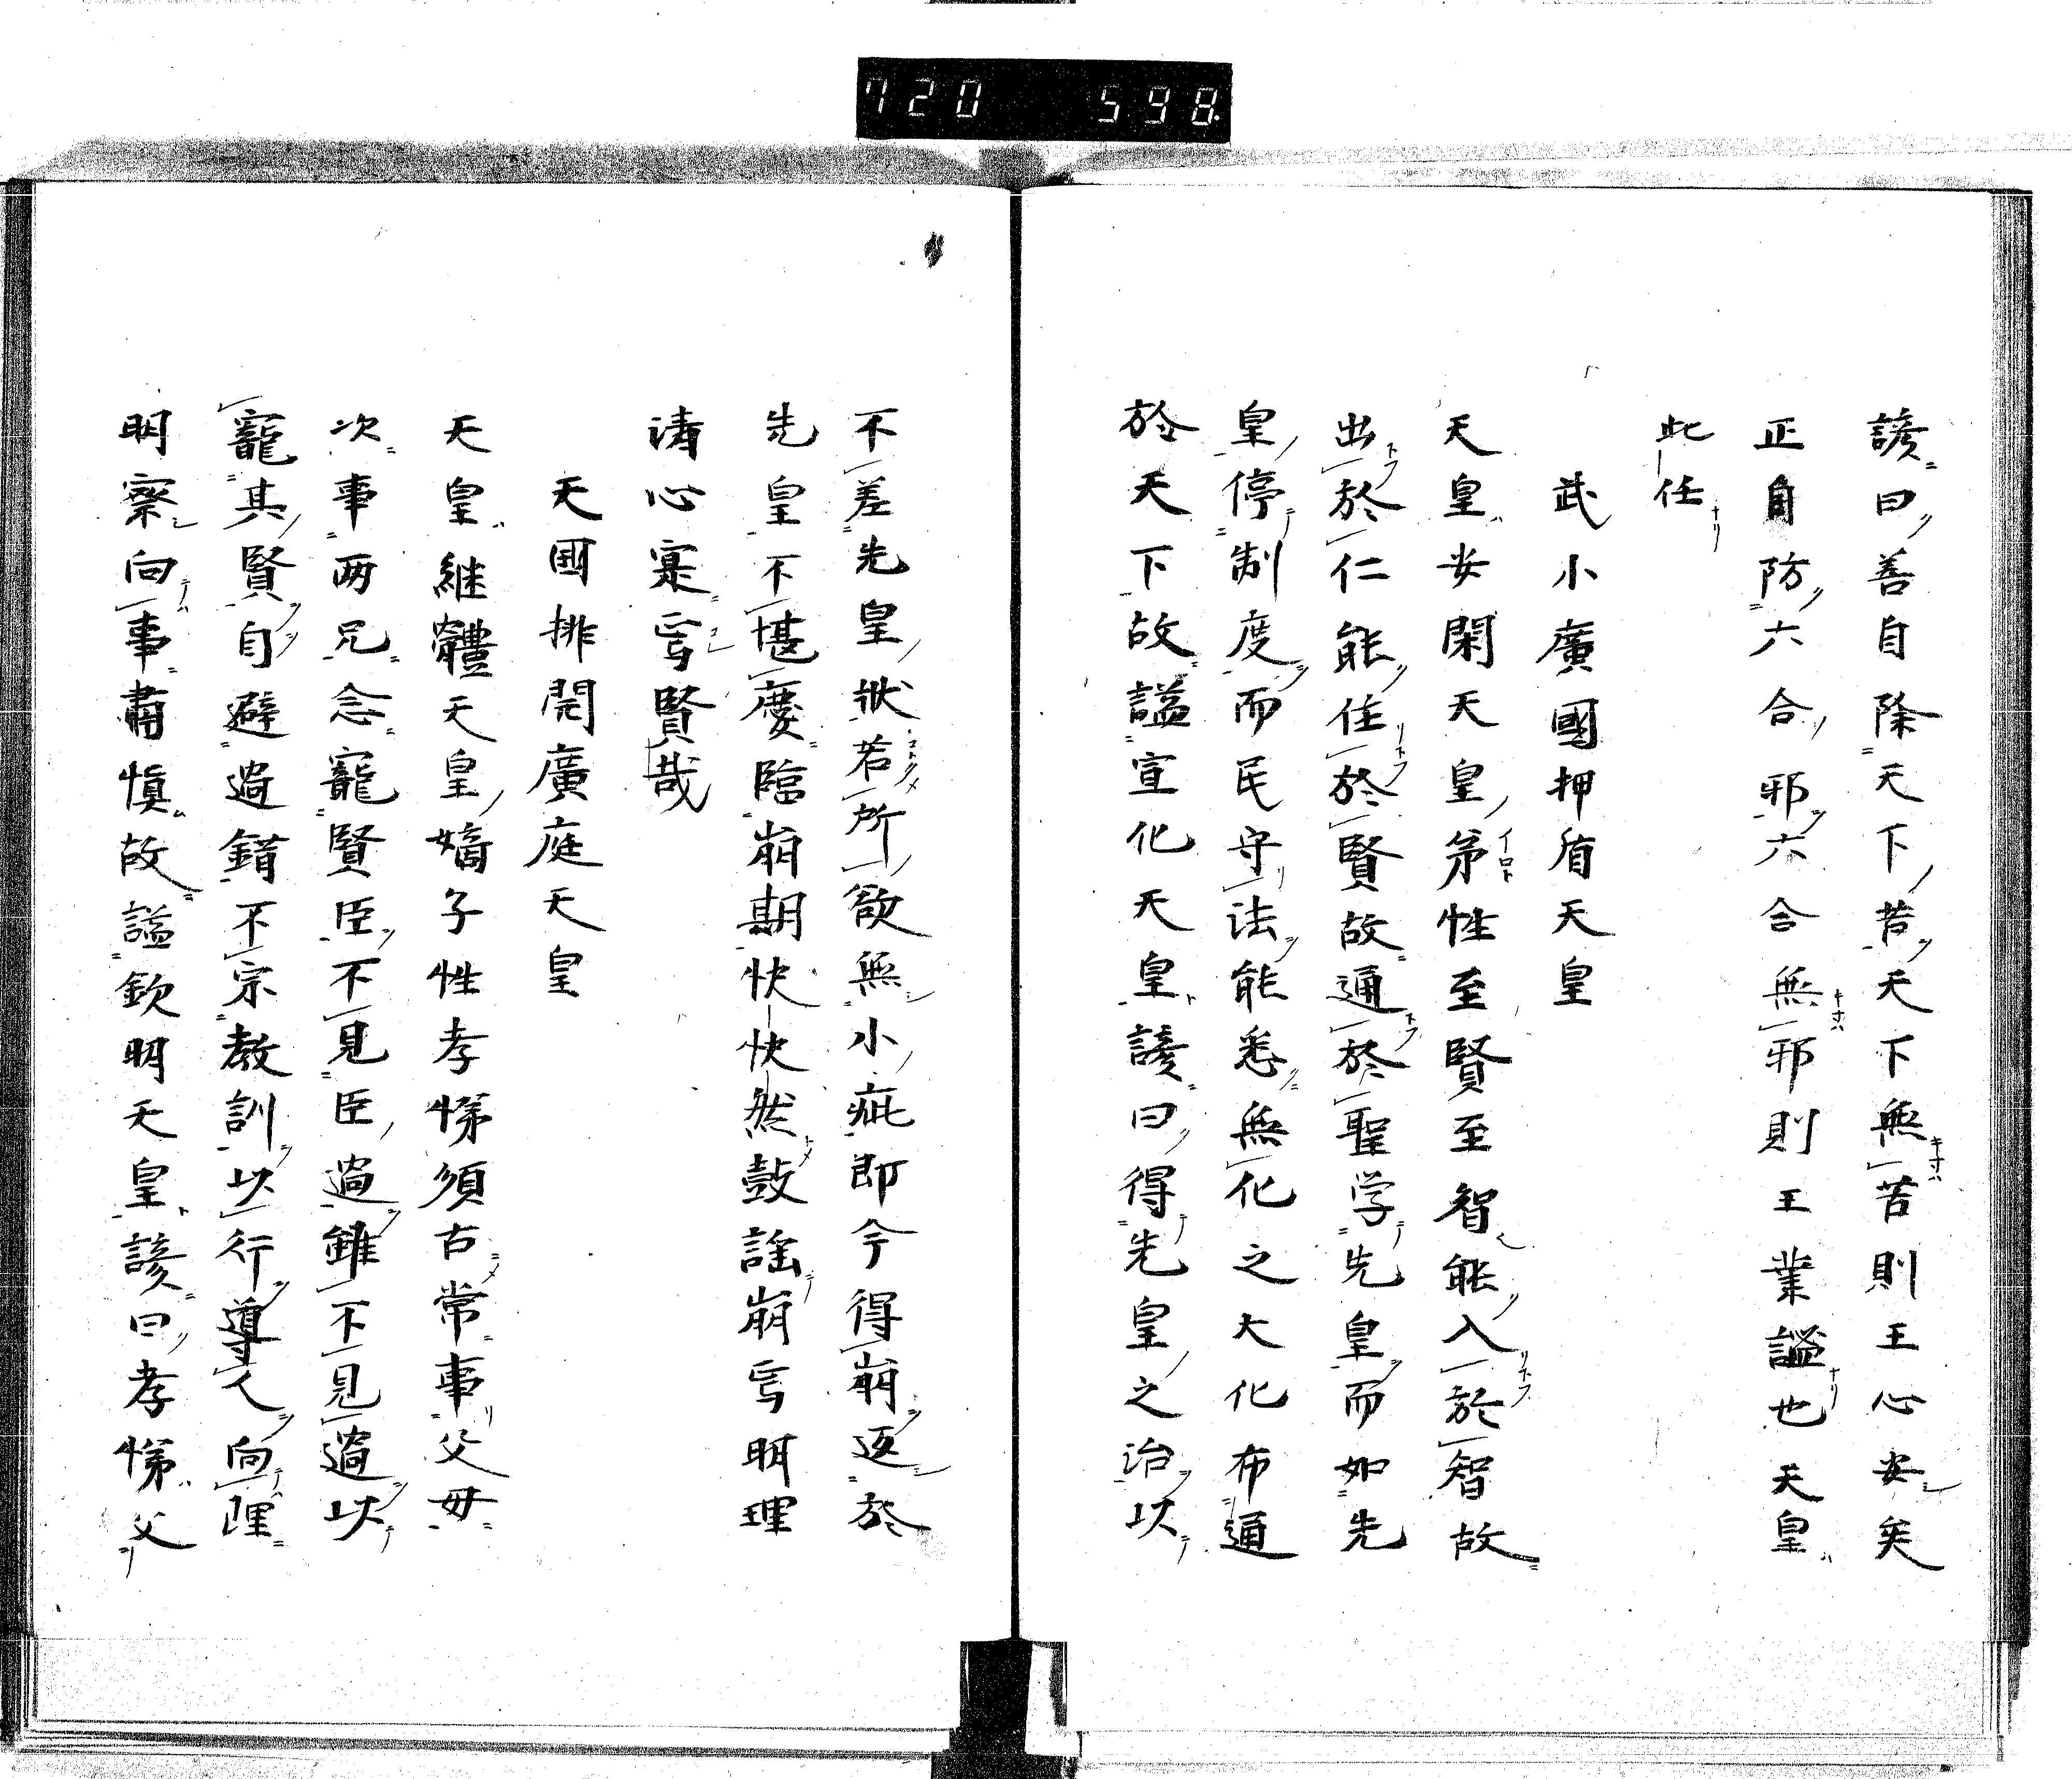 720 598
諺曰善自除天下苦天下無苦則王心安矣
正自防六合邪六合無邪則王業謚也天皇
此任
武小廣國押盾天皇
天皇安閑天皇弟性至賢至智能入於智故
出於仁能住於賢故通於聖学先皇而如先
皇停制度而民守法能悉無化之大化布通
於天下故謚宣化天皇諺曰得先皇之治以
不差先皇狀若所欲無小疵即今得崩返於
先皇不堪慶臨崩期快快然鼓謡崩焉明理
清心寔焉賢哉
天國排開廣庭天皇
天皇継體天皇嫡子性孝悌須古常事父母
次事两兄念寵賢臣不見臣過雖不見過以
寵其賢自避過錯不宗教訓以行導人向理
明察向事肅慎故謚欽明天皇諺曰孝悌父